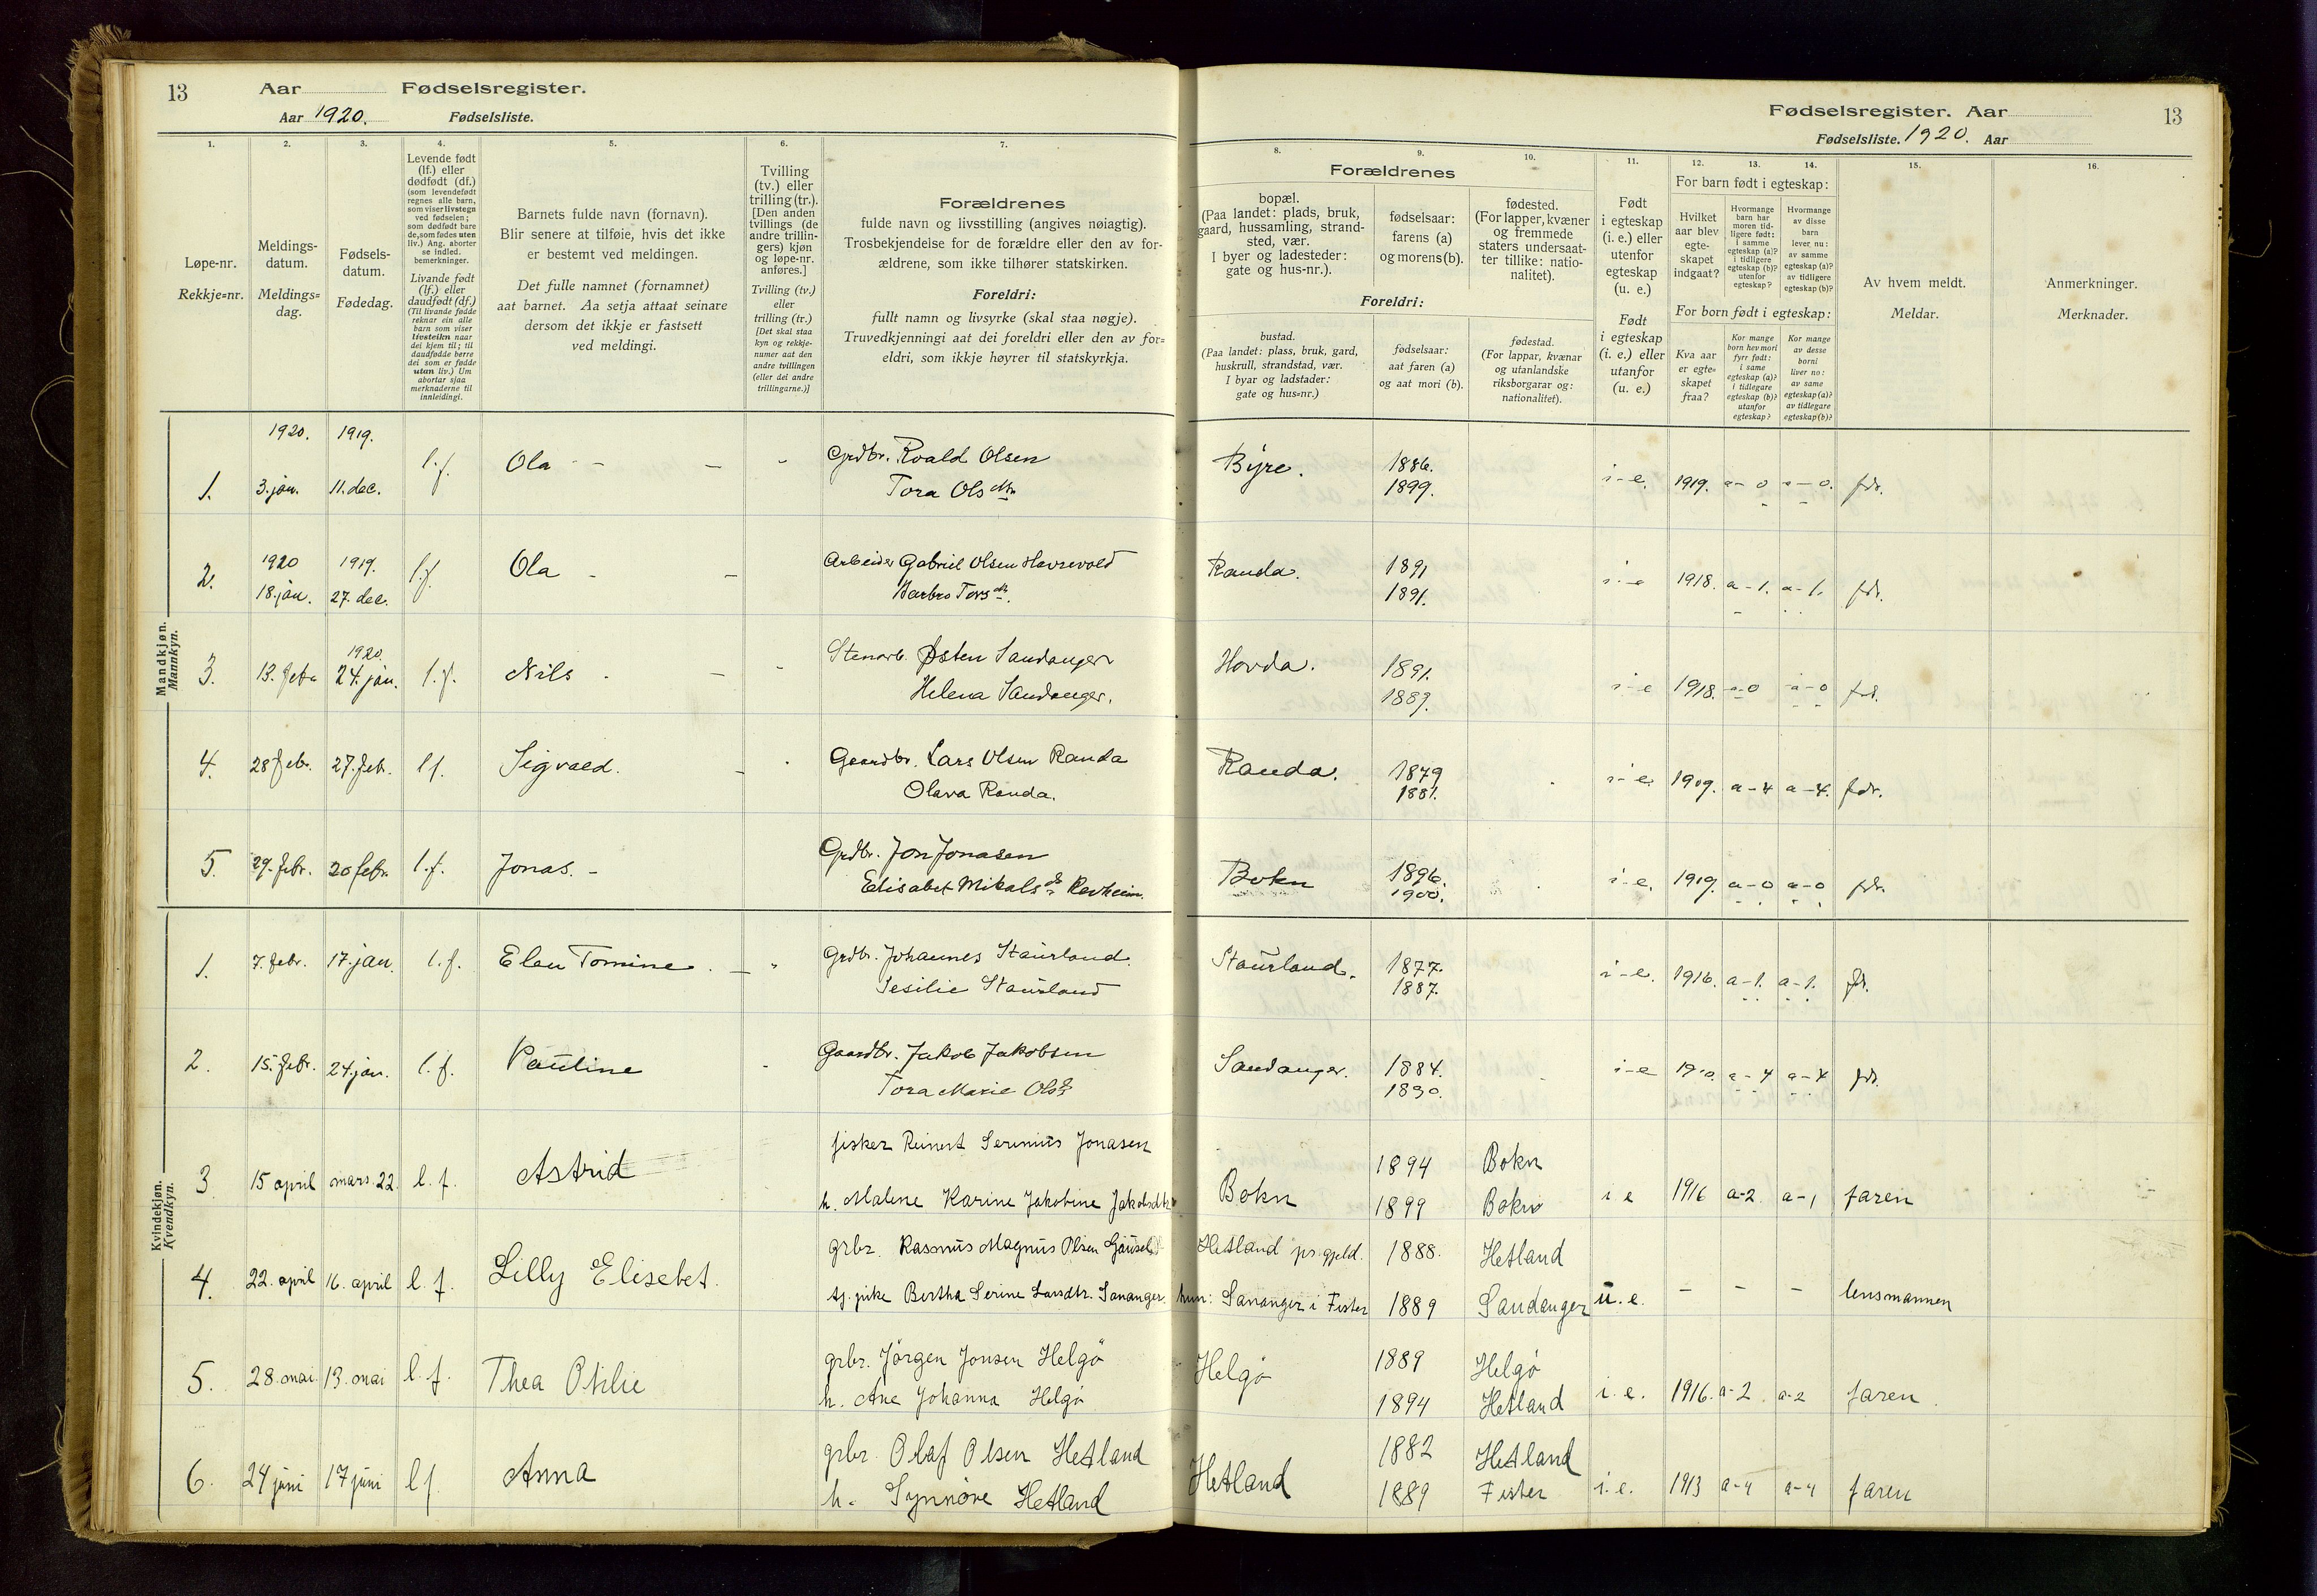 13 Aar Fødselsregister.
Aar 1920. Fødselsliste.
Fødselsregister. Aar 13
Fødselsliste. 1920. Aar
1. 2. 3. 4. 5. 6. 7. 8. 9. 10. 11. 12. 13. 14. 15. 16.
Løpe-nr.
Rekkje=nr.
Meldings-
datum.
Meldings=
dag.
Fødsels-
datum.
Fødedag.
Levende født
(lf.) eller
dødfødt (df.)
(som levendefødt
regnes alle barn,
som viser livstegn
ved fødselen;
som dødfødt bare
de, som fødes uten
liv.) Ang. aborter
se indled.
bemerkninger.
Livande født
(lf.) eller
daudfødt (df.)
(Til livande fødde
reknar ein alle
barn som viser
livsteikn naar
dei kjem til; til
daudfødde berre
dei som er fødde
utan liv.) Um
abortar sjaa
merknaderne til
innleidingi.
Barnets fulde navn (fornavn).
Blir senere at tilføie, hvis det ikke
er bestemt ved meldingen.
Det fulle namnet (fornamnet)
aat barnet. Aa setja attaat seinare
dersom det ikkje er fastsett
ved meldingi.
Tvilling
(tv.) eller
trilling (tr.).
[Den anden
tvillings (de
andre trillin-
gers) kjøn
og løpe-nr.
anføres.]
Tvilling (tv.)
eller
trilling (tr.)
[Det skal staa
kyn og rekkje-
numer aat den
andre tvillingen
(eller dei andre
trillingarne.)]
Forældrenes
fulde navn og livsstilling (angives nøiagtig).
Trosbekjendelse for de forældre eller den av for-
ældrene, som ikke tilhører statskirken.
Foreldri:
fullt namn og livsyrke (skal staa nøgje).
Truvedkjenningi aat dei foreldri eller den av for=
eldri, som ikkje høyrer til statskyrkja.
Forældrenes
bopæl.
(Paa landet: plads, bruk,
gaard, hussamling, strand-
sted, vær.
I byer og ladesteder:
gate og hus-nr.).
fødselsaar:
farens (a)
og morens (b).
fødested.
(For lapper, kvæner
og fremmede
staters undersaat-
ter tillike: natio-
nalitet).
Foreldri:
bustad.
(Paa landet: plass, bruk, gard,
huskrull, strandstad, vær.
I byar og ladstader:
gate og hus=nr.)
fødselsaar:
aat faren (a)
og aat mori (b).
fødestad.
(For lappar, kvænar
og utanlandske
riksborgarar og:
nationalitet).
Født
i egteskap
(i. e.) eller
utenfor
egteskap
(u. e.)
Født
i egteskap
(i. e.) eller
utanfor
(u. e.)
For barn født i egteskap:
Hvilket
aar blev
egte-
skapet
indgaat?
Hvormange
barn har
moren tid-
ligere født:
i samme
egteskap (a)?
i tidligere
egteskap (b)?
utenfor
egteskap?
Hvormange
av disse
barn
lever nu:
av samme
egteskap (a)?
av tidligere
egteskap (b)?
For born født i egteskap:
Kva aar
er egte=
skapet
fraa?
Kor mange
born hev mori
fyrr født:
i same
egteskap (a)?
i tidlegare
egteskap (b)?
utanfor
egteskap?
Kor mange
av desse
borni
liver no:
av same
egteskap (a)?
av tidlegare
egteskap (b)?
Av hvem meldt.
Meldar.
Anmerkninger.
Merknader.
Mandkjøn.
Mannkyn.
1920. 1919.
1. 3. jan. 11. dec. l.f. Ola Grdbr. Roald Olsen Byre. 1886. i-e. 1919. a-0 a-0. fdr.
Tora Olsdtr 1899.
1920 1919.
2. 18. jan. 27. dec. l.f. Ola Arbeider Gabriel Olsen Randa. 1891 i-e 1918. a-1. a-1. fdr.
Barbro Torsdtr. 1891.
1920.
3. 13. feb. 24. jan. l.f. Nils Stenarb. Østen Sandanger Hovda. 1891. i-e 1918. a-0 a-0 fdr.
Helena Sandanger. 1889.
4. 28 febr. 27. feb. lf. Sigvald. Gaardbr. Lars Olsen Randa Randa. 1879 i-e. 1909. a-4 a-4. fdr.
Olava Randa. 1881.
5. 29. febr. 20 febr. l.f. Jonas. Grdbr. Jon Jonasen Bokn 1896. i-e. 1919. a-0 a-0 fdr.
Elisabet Mikalsdtr Revheim. 1900.
Kvindekjøn.
Kvendkyn.
1. 7. febr. 17. jan. l.f. Elen Tomine. Grdbr. Johannes Staurland. Staurland. 1877. i-e. 1916. a-1. a-1. fdr.
Sesilie Staurland 1887.
2. 15. febr. 24. jan. l.f. Pauline Gaardbr. Jakob Jakobsen Sandanger. 1884. i-e 1910. a-4 a-4 fdr.
Tora Marie Olsdtr 1890.
3. 15 april mars 22. l.f. Astrid fisker Reinert Serenius Jonasen 1894 Bokn
h. Malene Karine Jakobine Jakobsdtr Bokn 1899 Bokn i e 1916 a-2. a-1 faren
4. 22. april 16. april l.f. Lilly Elisebet. grbr. Rasmus Magnus Olsen Gausel Hetland pr.gjeld. 1888. Hetland
tj. pike Bertha Serine Larsdtr. Sananger. hun: Sananger i Fister 1889 Sandanger u.e. - - - lensmannen
5. 28. mai 13. mai l.f. Thea Otilie grbr. Jörgen Jonsen Helgö Helgö 1889 Helgö
h. Ane Johanna Helgö 1894 Hetland i.e. 1916. a-2 a-2 faren
6. 24 juni 17 juni l f. Anna grbr. Olaf Olsen Hetland Hetland 1882 Hetland
h. Synnöve Hetland 1889 Fister i.e. 1913 a-4 a-4 faren